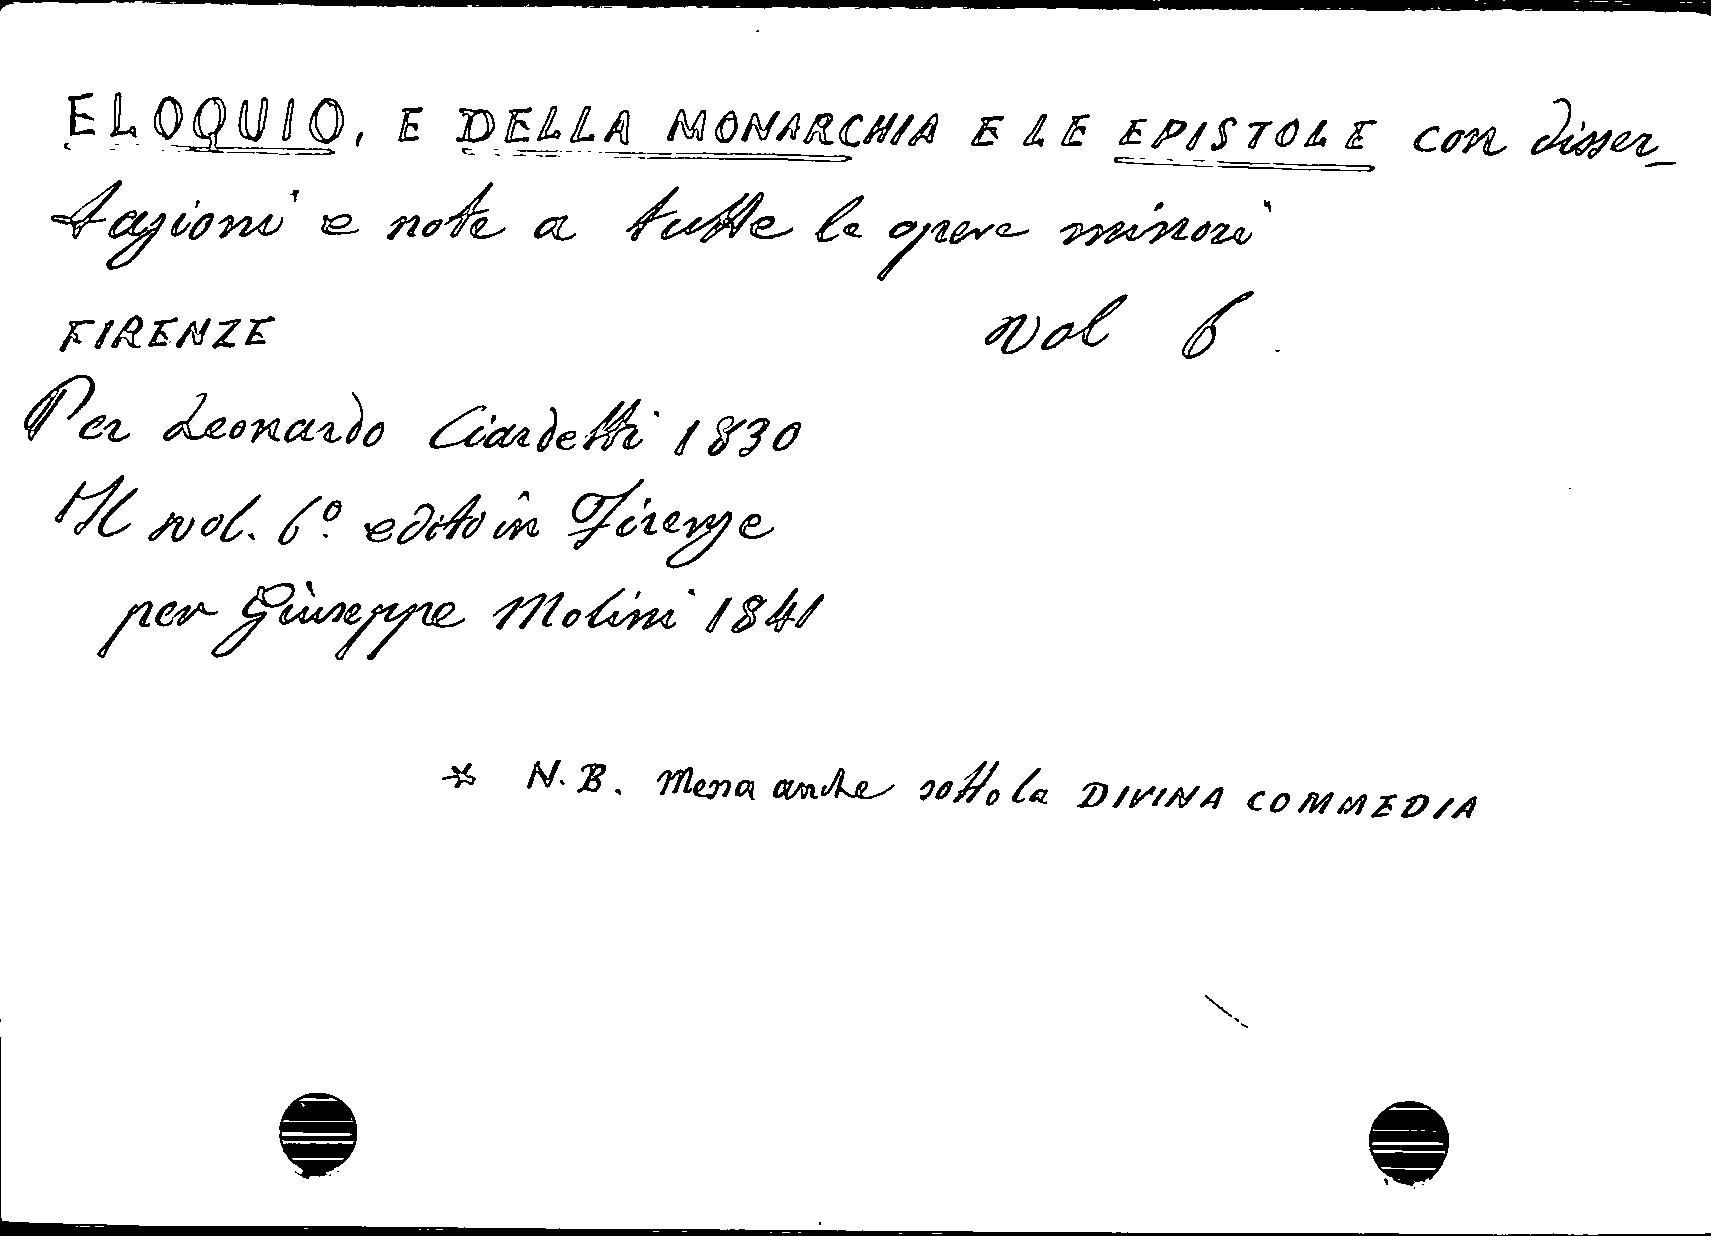 ELOQUIO, E DELLA MONARCHIA E LE EPISTOLE con disser_
tazioni e note a tutte le opere minori
FIRENZE vol 6
Per Leonardo Ciardetti 1830
Il vol. 6º edito in Firenze
per Giuseppe Molini 1841
* N.B. Messa anche sotto la DIVINA COMMEDIA